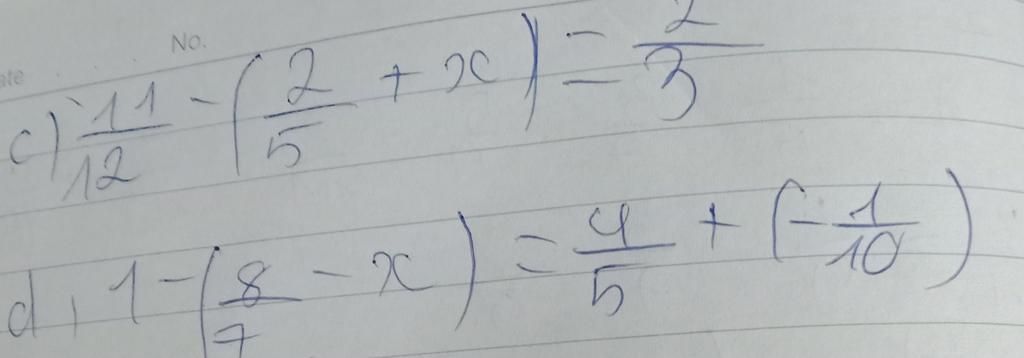 No.
c) 11/12 - (2/5 + x) = 2/3
d, 1 - (8/7 - x) = 4/5 + (-1/10)